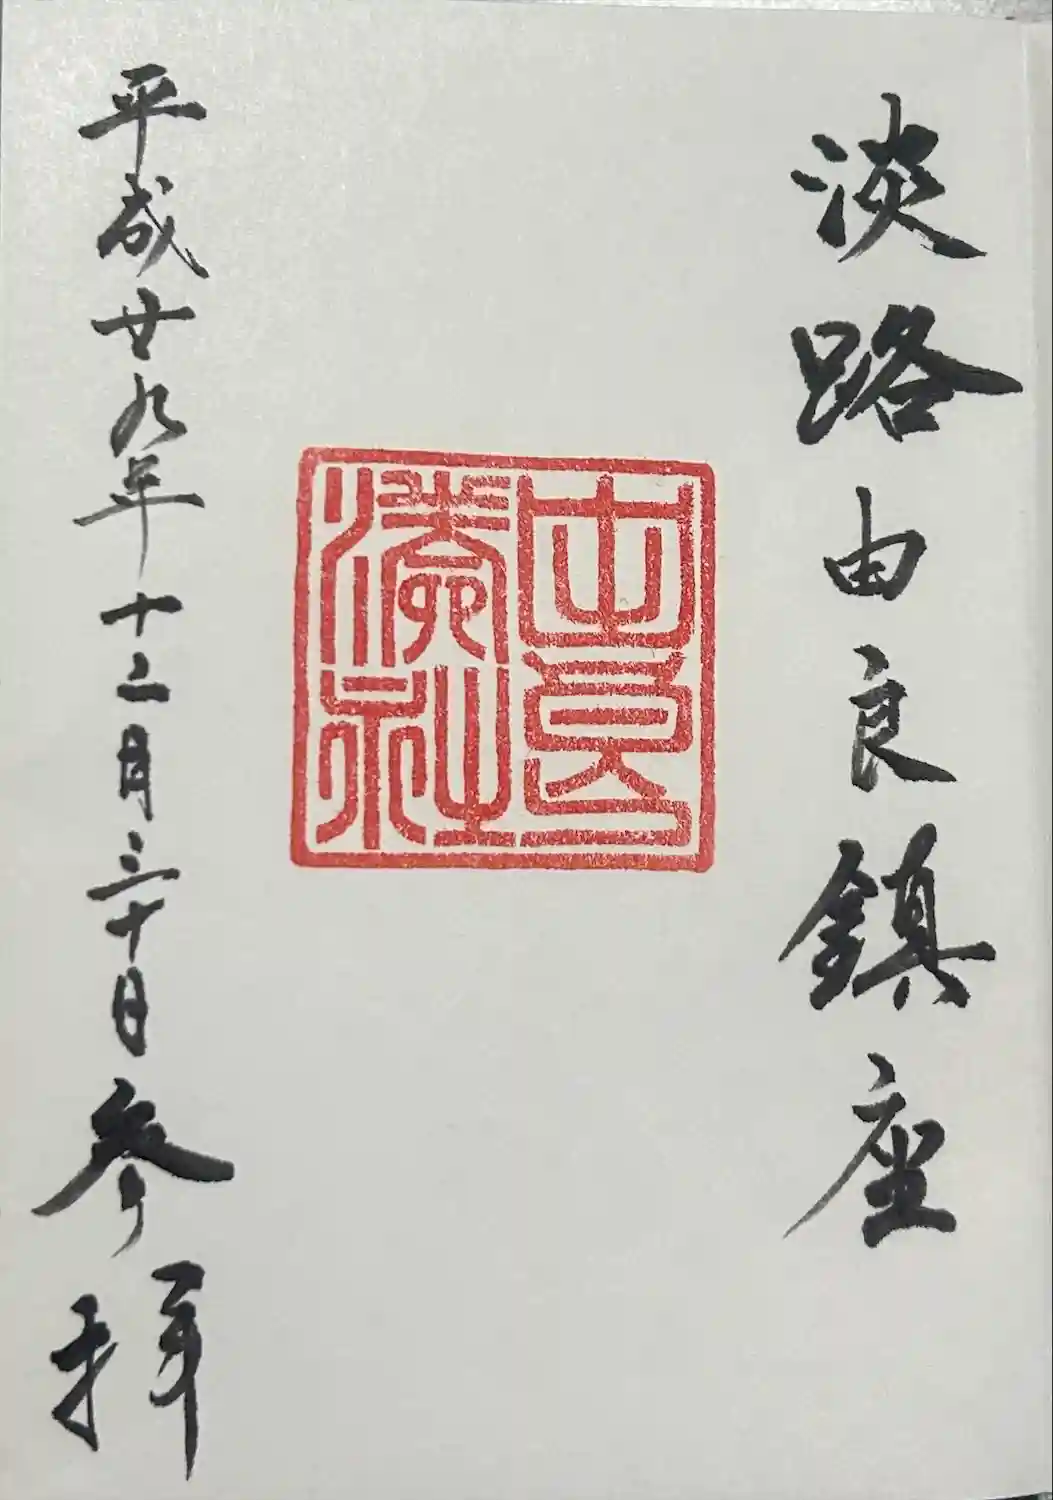 淡路由良鎮座
由良
湊神社
平成廿九年十二月三十日参拝